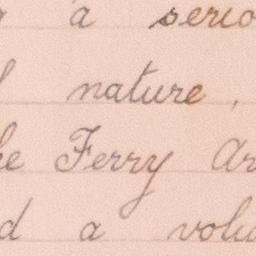 a serio
nature,
he Ferry Ar
d a volu